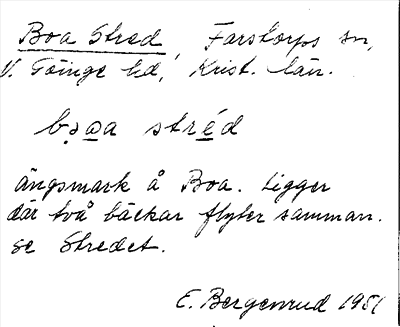 Boa Stred, Farstorps sn,
V. Göinge hd, Krist. län.
bo̯a̲a stré̲d
ängsmark å Boa. Ligger
där två bäckar flyter samman.
se Stredet.
E. Bergenrud 1951